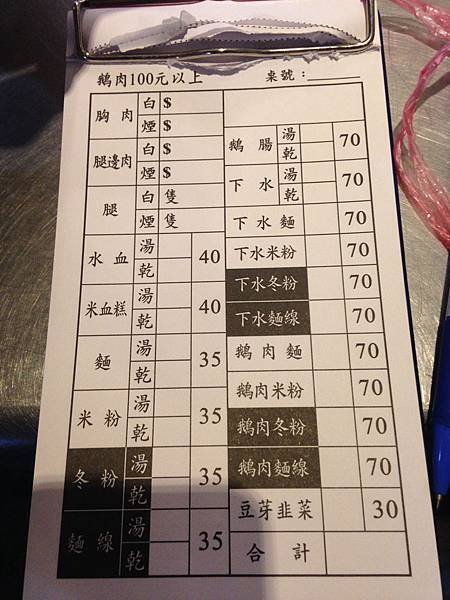 鵝肉100元以上 桌號：
胸肉 白 $
煙 $
腿邊肉 白 $
煙 $
腿 白 隻
煙 隻
水血 湯 40
乾
米血糕 湯 40
乾
麵 湯 35
乾
米粉 湯 35
乾
冬粉 湯 35
乾
麵線 湯 35
乾
鵝腸 湯 70
乾
下水 湯 70
乾
下水麵 70
下水米粉 70
下水冬粉 70
下水麵線 70
鵝肉麵 70
鵝肉米粉 70
鵝肉冬粉 70
鵝肉麵線 70
豆芽韭菜 30
合計